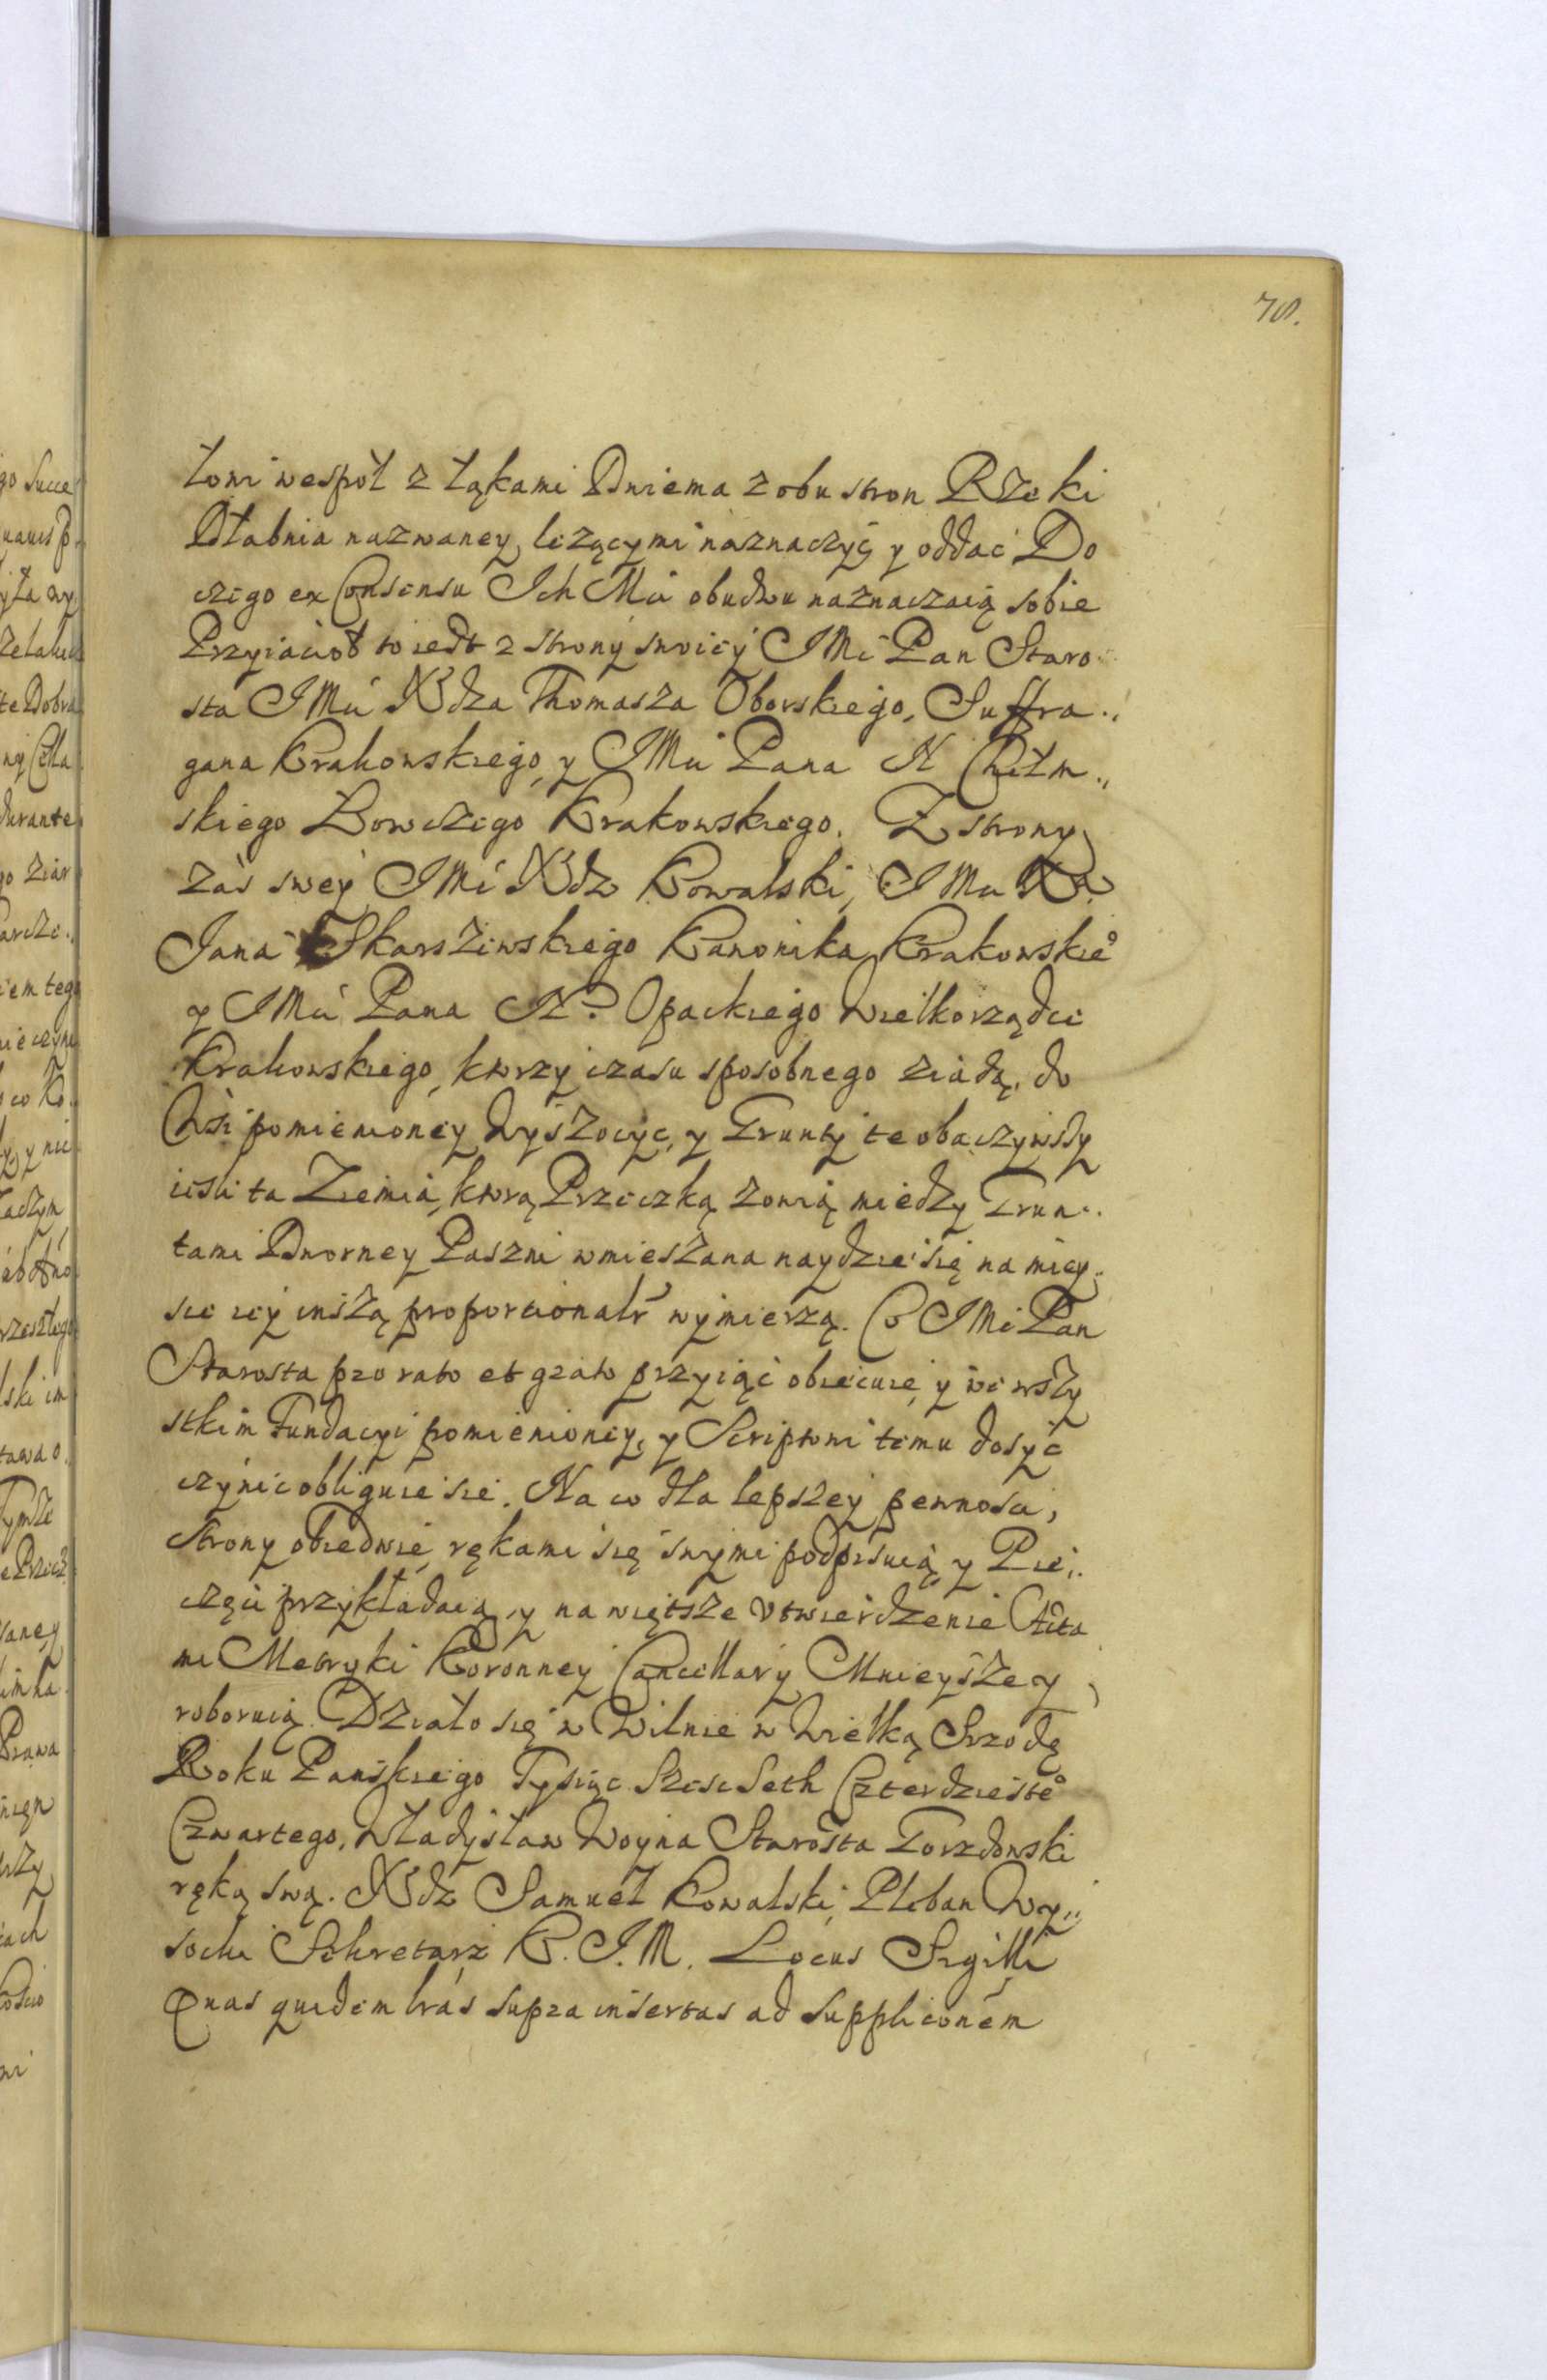 78.
łowi wespół z łąkami Dwiema z obu stron Rzeki
Dłabnia nazwaney, leżącymi naznaczyć y oddać Do
czego ex Consensu Ich Mći obudwu naznaczaią sobie
Przyiacioł to iest z strony swoiey IMć Pan Staro
sta IMći Xdza Thomasza Oborskiego, Suffra„
gana Krakowskiego, y IMći Pana N Chełm„
skiego Łowczego Krakowskiego. Z strony
zaś swey IMć Xdz Kowalski, IMći Xa
Jana Skarszewskiego Kanonika Krakowskieo
y IMći Pana N. Opackiego Wielkorządce
Krakowskiego, ktorzy czasu sposobnego ziadą, do
Wsi pomienioney Wyszocyc, y Grunty te obaczywszy
iesli ta Ziemia, ktorą Przeczką zowią miedzy Grun„
tami Dworney Paszni wmieszana naydzie się na miey„
sce iey inszą proportionalr wymierzą. Co IMć Pan
Starosta pro rato et grato przyiąć obiecuie, y we wszy
stkim Fundacyi pomienioney, y Scriptowi temu dosyć
czynic obliguie sie. Na co dla lepszey pewnosci,
strony obiedwie, rękami się swymi podpisuią y Pie„
częci przykładaią, y na więtsze Vtwierdzenie Acta
mi Metryki Koronney Cancellary Mnieyszey
roboruią. Działo się w Wilnie w Wielką Srzodę
Roku Pańskiego Tysiąc Szesc Seth Czterdziesteo
Czwartego. Władysław Woyna Starosta Torzdowski
ręką swą. Xdz Samuel Kowalski, Pleban Wy„
socki Sekretarz K. J. M. Locus Sigilli
Quas quidem lrás supra insertas ad suppliconem
go Succe
Dobra
durante
em tego
Prawa